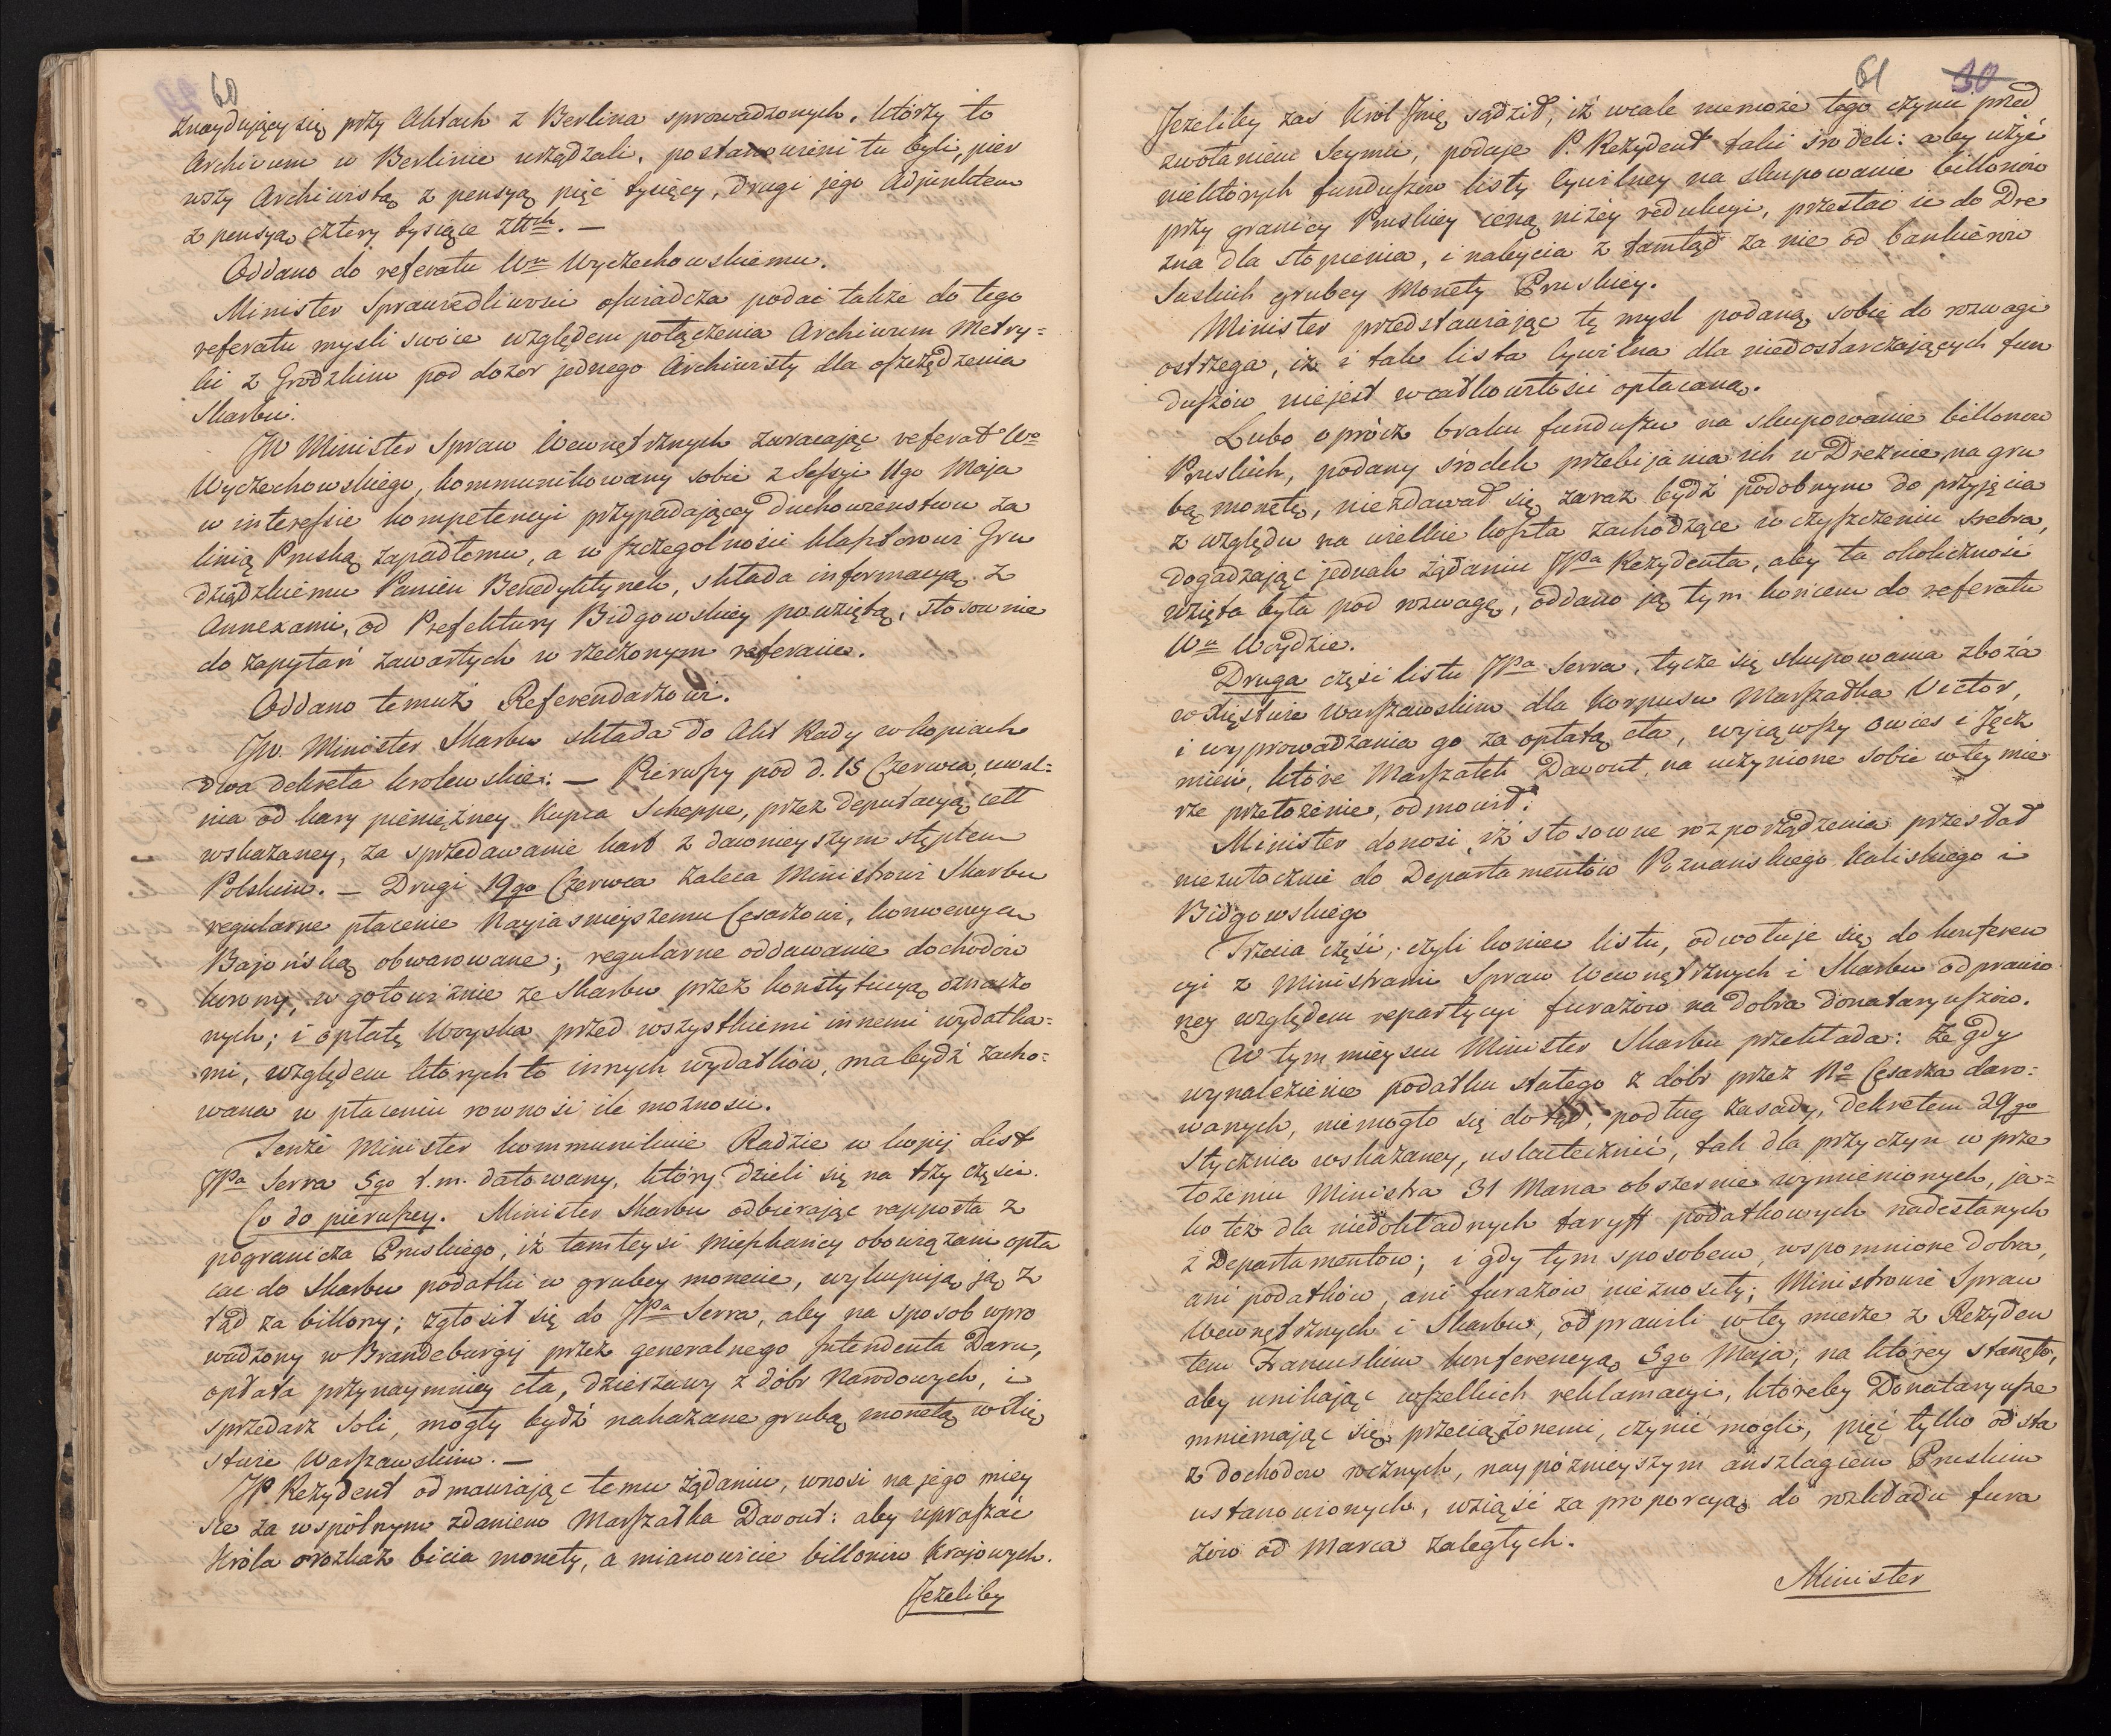 60
znaydujący się przy Aktach z Berlina sprowadzonych, którzy to
Archivum w Berlinie urządzali, postanowieni tu byli, pier
wszy Archiwistą z pensyą pięć tysięcy, drugi jego Adjunktem
z pensyą cztery tysiące złtch. —
Oddano do referatu Wu Wyczechowskiemu.
Minister Sprawiedliwosci oświadcza podać także do tego
referatu mysli swoie względem połączenia Archiwum Metry=
ki z Grodzkim pod dozor jednego Archiwisty dla oszczędzenia
Skarbu.
JW Minister Spraw Wewnętrznych zwracając referat Wo
Wyczechowskiego, kommunikowany sobie z Sessyi 11go Maja
w interessie kompetencyi przypadającey duchowieństwu za
linią Pruską zapadłemu, a w szczegolnosci klasztorowi Gru
dziądzkiemu Panien Benedyktynek, składa informacyą z
Annexami, od Prefektury Bidgowskiey powziętą, stosownie
do zapytań zawartych w rzeczonym referacie.
Oddano temuż Referendarzowi.
JW. Minister Skarbu składa do Akt Rady w kopiach
dwa dekreta krolewskie: — Pierwszy pod d. 15 Czerwca, uwal=
nia od kary pieniężney Kupca Scheppe, przez deputacyą cell
wskazaney, za sprzedawanie kart z dawnieyszym stęplem
Polskim. — Drugi 19go Czerwca zaleca Ministrowi Skarbu
regularne płacenie Nayiasnieyszemu Cesarzowi, konwencyą
Bajońską obwarowane; regularne oddawanie dochodów
korony, w gotowiznie ze Skarbu przez konstytucyą oznaczo
nych; i opłatę Woyska przed wszystkiemi innemi wydatka=
mi, względem których to innych wydatków, ma bydź zacho=
wana w płaceniu rownosć ile moznosci.
Tenże Minister kommunikuie Radzie w kopij List
JPa Serra 5go t.m. datowany, który dzieli się na trzy częsci.
Co do pierwszey. Minister Skarbu odbierając rapporta z
pogranicza Pruskiego, iż tamteysi mieszkańcy obowiązani opła
cać do Skarbu podatki w grubey monecie, wykupują ją z
tąd za billony; zgłosił się do JPa Serra, aby na sposob wpro
wadzony w Brandeburgij przez generalnego Intendenta Daru,
opłata przynaymniey cła, dzierzawy z dóbr Narodowych, i
sprzedarz Soli, mogły bydź nakazane grubą monetą w Xię
stwie Warszawskim. —
JP. Rezydent odmawiając temu żądaniu, wnosi na jego miey
sce za wspólnym zdaniem Marszałka Davout: aby upraszać
Króla o rozkaz bicia monety, a mianowicie billonów Krajowych.
Jeżeliby
61 30
Jeżeliby zaś Król Jmć sądził, iż wcale niemoże tego czynić przed
zwołaniem Seymu, podaje P. Rezydent taki środek: aby użyć
niektórych funduszów listy cywilney na skupowanie billonów
przy granicy Pruskiey ceną niżey redukcyi, przesłać ie do Dre
zna dla stopienia, i nabycia z tamtąd za nie od bankierów
Saskich grubey Monety Pruskiey.
Minister przedstawiając tę mysl podaną sobie do rozwagi
ostrzega, iż i tak lista cywilna dla niedostarczających fun
duszów niejest w całkowitości opłacaną.
Lubo oprócz braku funduszu na skupowanie billonów
Pruskich, podany środek przebijania ich w Dreźnie, na gru
bą monetę, niezdawał się zaraz bydź podobnym do przyjęcia
z względu na wielkie koszta zachodzące w czyszczeniu srebra,
dogadzając jednak żądaniu JPa Rezydenta, aby ta okoliczność
wzięta była pod rozwagę, oddano ją tym końcem do referatu
Wu Woydzie.
Druga część listu JPa Serra, tycze się skupowania zboża
w Xięstwie Warszawskim dla Korpusu Marszałka Victor,
i wyprowadzania go za opłatą cła, wyjąwszy Owies i Jęcz
mień, które Marszałek Davout, na uczynione sobie w tey mie
rze przełożenie, odmowił.
Minister donosi iż stosowne rozporządzenia przesłał
niezwłocznie do Departamentów Poznańskiego Kaliskiego i
Bidgowskiego
Trzecia część, czyli koniec listu, odwołuje się do konferen
cyi z Ministrami Spraw Wewnętrznych i Skarbu odprawio
ney względem repartycyi furażów na dobra donataryuszów.
W tym mieyscu Minister Skarbu przekłada: że gdy
wynalezienie podatku stałego z dóbr przez No Cesarza daro=
wanych, niemogło się dotąd, podług zasady, dekretem 29go
Stycznia wskazaney, uskutecznić, tak dla przyczyn w prze
łożeniu Ministra 31 Marca obszernie wymienionych, ja=
ko też dla niedokładnych taryff podatkowych nadesłanych
z Departamentów; i gdy tym sposobem, wspomnione dobra,
ani podatków, ani furażów nieznosiły; Ministrowie Spraw
Wewnętrznych i Skarbu, odprawili w tey mierze z Rezyden
tem Francuskim konferencyą 5go Maja; na którey stanęło,
aby unikając wszelkich reklamacyi, któreby Donataryusze
mniemając się przeciążonemi, czynić mogli, pięć tylko od sta
z dochodów rocznych, naypóźnieyszym anszlagiem Pruskim
ustanowionych, wziąść za proporcyą do rozkładu fura
żów od Marca zaległych.
Minister